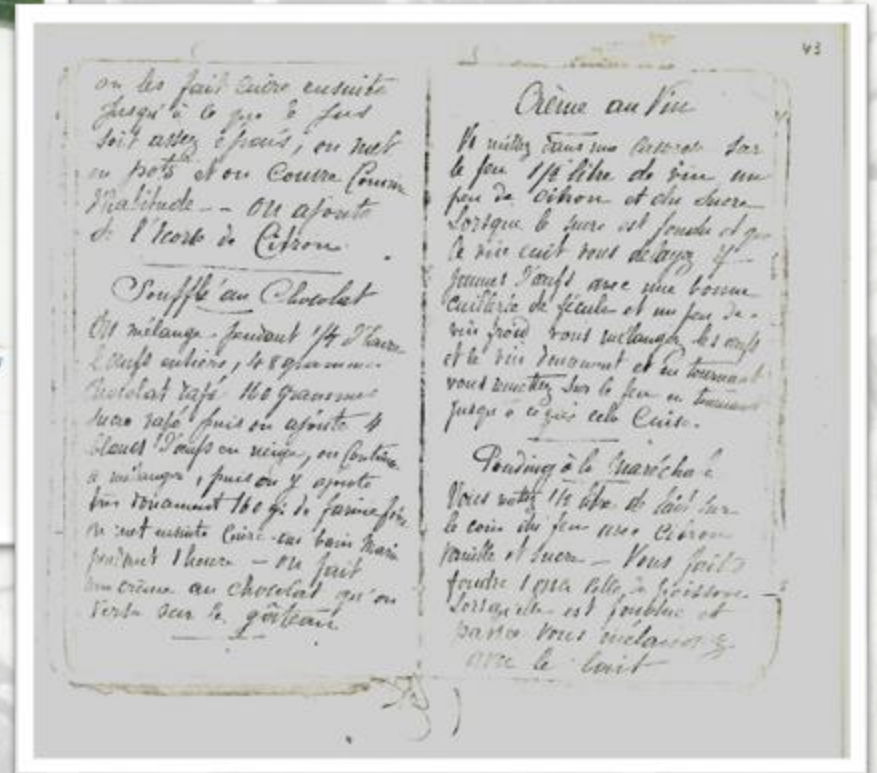 on les fait cuire ensuite
jusqu'à ce que le jus
soit assez épais, on met
en pots et on couvre comme
d'habitude -- on ajoute
de l'écorce de Citron.
Soufflé au Chocolat
On mélange pendant 1/4 d'heure
oeufs entiers, 48 grammes
chocolat râpé 160 grammes
sucre râpé puis on ajoute 4
blancs d'oeufs en neige, on continue
a mélanger, puis on y ajoute
très doucement 160 g. de farine
on met ensuite cuire au bain Marie
pendant 1 heure — on fait
une crème au chocolat qu'on
verse sur le gâteau
43
Crème au Vin
Vs mettez dans une casserole sur
le feu 1/2 litre de vin un
peu de citron et du sucre
Lorsque le sucre est fondu et que
le vin cuit vous delayez 4
jaunes d'oeufs avec une bonne
cuillerée de fécule et un peu de
vin froid vous mélangez les oeufs
et le vin doucement et en tournant
vous remettez sur le feu en tournant
jusqu'a ce que cela cuise.
Pouding à la Maréchale
Vous mettez 1/2 litre de lait sur
le coin du feu avec citron
vanille et sucre — Vous faites
fondre colle de poisson
Lorsqu'elle est fondue et
passée vous mélangez
avec le lait